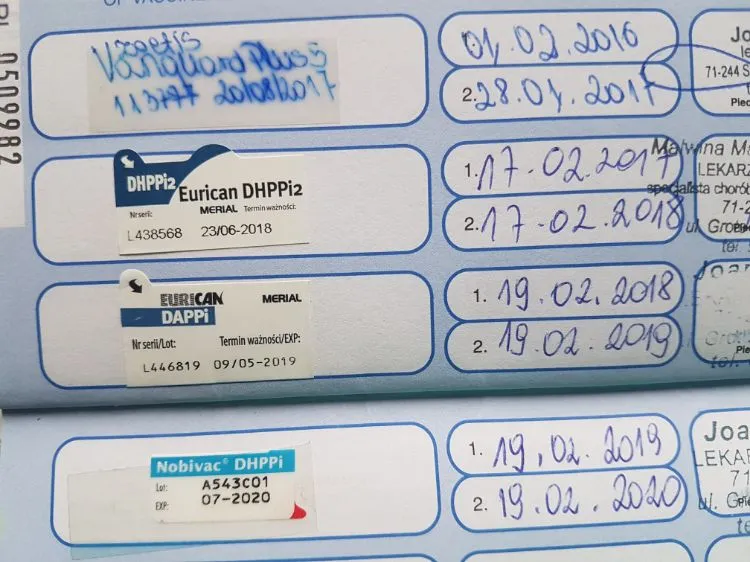 zoetis
Vanguard Plus 5
113777 20/08/2017
01.02.2016
2. 28.01.2017
Jo
71-244 S
DHPPi2
Eurican DHPPi2
Nr serii: MERIAL Termin ważności:
L438568 23/06-2018
1. 17.02.2017
2. 17.02.2018
Malwina M
LEKARZ
specjalista chorób
71-2
ul. Grot
tel.
EURICAN MERIAL
DAPPi
Nr serii/Lot: Termin ważności/EXP:
L446819 09/05-2019
1. 19.02.2018
2. 19.02.2019
Joan
tel.
Nobivac® DHPPi
Lot: A543C01
EXP: 07-2020
1. 19.02.2019
2. 19.02.2020
Joa
LEKARZ
71
ul. Gro
tel.
0509982